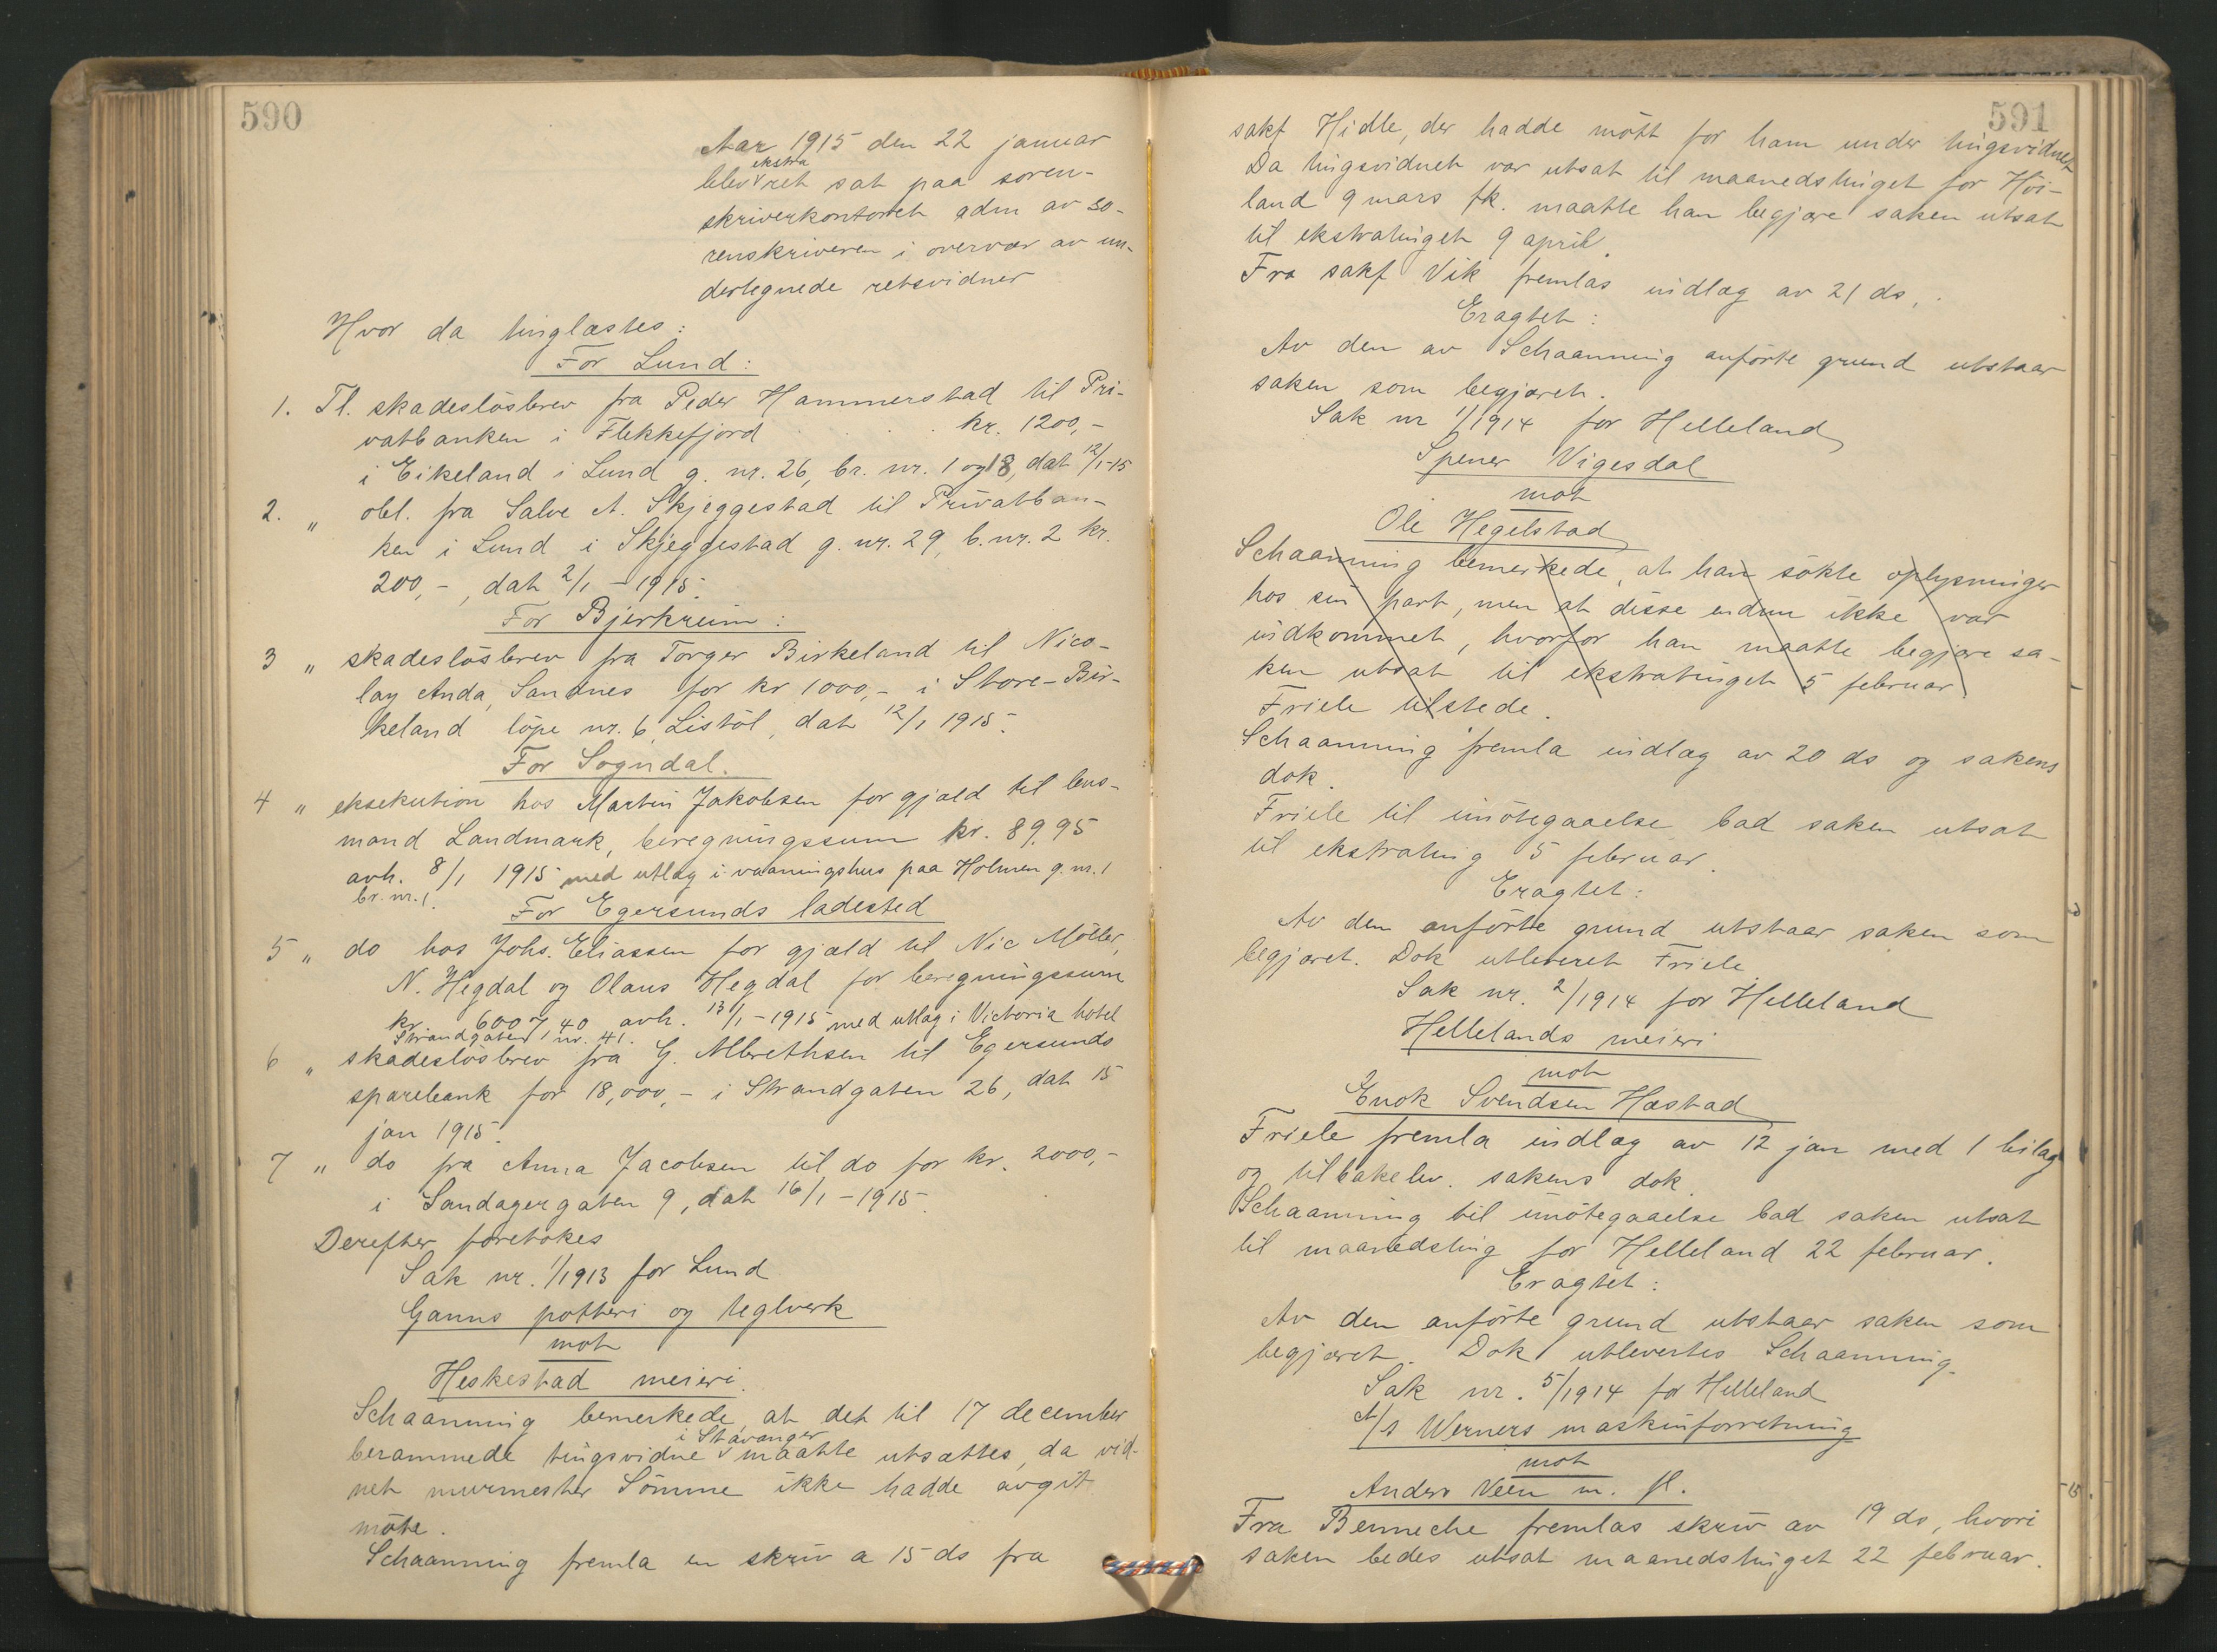 590
Aar 1915 den 22 januar
ekstra
blev ret sat paa soren-
skriverkontoret adm av so-
renskriveren i overvær av un-
dertegnede retsvidner
Hvor da tinglæstes:
For Lund:
1. Tl. skadeslösbrev fra Peder Hammerstad til Pri-
vatbanken i Flekkefjord . . . . kr. 1200,-
i Eikeland i Lund g. nr. 26, br. nr. 1 og 18, dat 12/1-15
2. " obl. fra Salve A. Skjeggestad til Privatban-
ken i Lund i Skjeggestad g. nr. 29, b. nr. 2 kr.
200,-, dat 2/1 - 1915.
For Bjerkreim:
3 " skadeslösbrev fra Torger Birkeland til Nico-
lay Anda, Sandnes for kr 1000,- i Store-Bir-
keland löpe nr. 6, Listöl, dat 12/1 1915.
For Sogndal.
4 " eksekution hos Martin Jakobsen for gjæld til lens-
mand Landmark, beregningssum kr. 89,95
avh. 8/1 1915 med utlæg i vaaningshus paa Holmen g. nr. 1
br. nr. 1.
For Egersunds ladested
5 " do hos Johs. Eliassen for gjæld til Nic Möller,
N. Hegdal og Olaus Hegdal for beregningssum
kr. 6007,40 avh. 13/1 - 1915 med utlæg i Victoria hotel
Strandgaten nr. 41.
6 " skadeslösbrev fra G. Albrethsen til Egersunds
sparebank for 18,000,- i Strandgaten 26, dat 15
jan 1915.
7 " do fra Anna Jacobsen til do for kr. 2000,-
i Sandagergaten 9, dat 16/1 - 1915.
Derefter foretokes
Sak nr. 1/1913 for Lund
Ganns potteri og teglverk
mot
Heskestad meieri.
Schaanning bemerkede, at det til 17 december
i Stavanger
berammede tingsvidne maatte utsættes, da vid-
net murmester Sömme ikke hadde avgit
möte.
Schaanning fremla en skriv a 15 ds fra
591
sakf Hidle, der hadde mött for ham under tingsvidnet
Da tingsvidnet var utsat til maanedstinget for Höi-
land 9 mars fk. maatte han begjære saken utsat
til ekstratinget 9 april.
Fra sakf Vik fremlas indlæg av 21 ds,.
Eragtet:
Av den av Schaanning anförte grund utstaar
saken som begjæret.
Sak nr 1/1914 for Helleland
Spener Vigesdal
mot
Ole Hegelstad
Schaanning bemerkede, at han sökte oplysninger
hos sin part, men at disse endnu ikke var
indkommet, hvorfor han maatte begjære sa-
ken utsat til ekstratinget 5 februar.
Friele tilstede.
Schaanning fremla indlæg av 20 ds og sakens
dok.
Friele til imötegaaelse bad saken utsat
til ekstrating 5 februar.
Eragtet:
Av den anförte grund utstaar saken som
begjæret. Dok utleveret Friele
Sak nr. 2/1914 for Helleland
Hellelands meieri
mot
Enok Svendsen Hæstad
Friele fremla indlæg av 12 jan med 1 bilag
og tilbakelev. sakens dok.
Schaanning til imötegaaelse bad saken utsat
til maanedsting for Helleland 22 februar.
Eragtet:
Av den anförte grund utstaar saken som
begjæret. Dok utlevertes Schaanning.
Sak nr. 5/1914 for Helleland
A/s Werners maskinforretning
mot
Anders Veen m. fl.
Fra Benneche fremlas skriv av 19 ds, hvori
saken bedes utsat maanedstinget 22 februar.